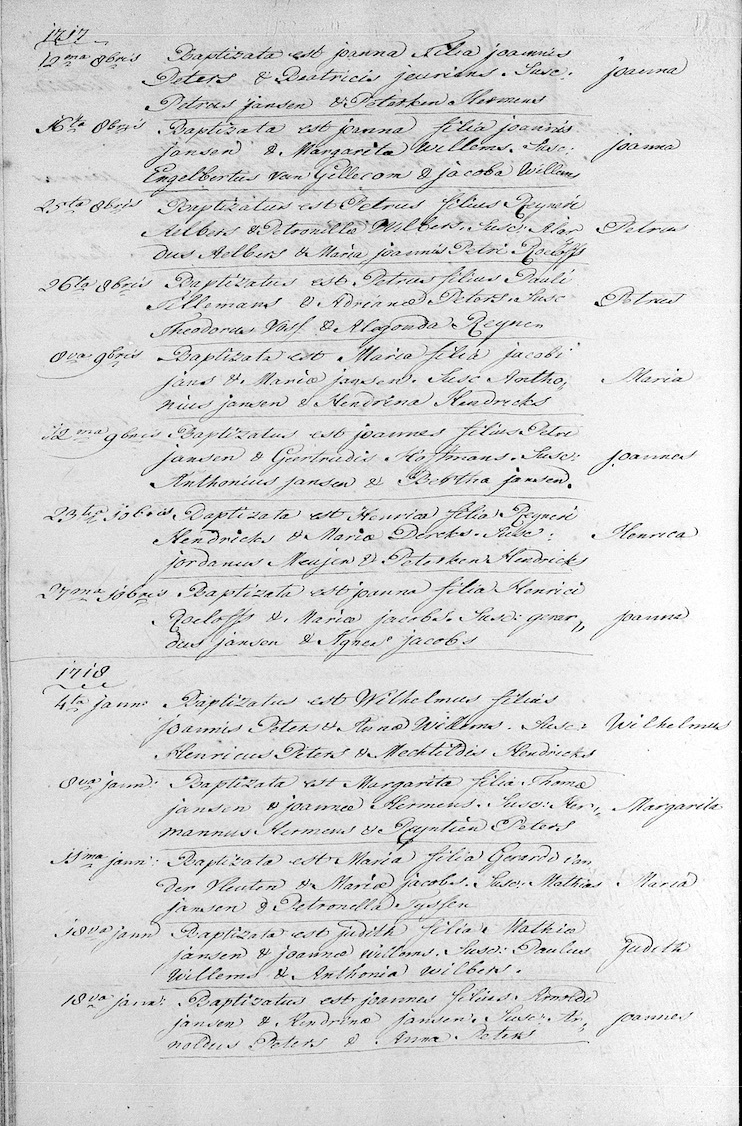 1717
12ma 8bris Baptizata est joanna filia joannis
Peters & Beatricis jeurians. Susc: joanna
Petrus jansen & Peterken Hermens
16ta 8bris Baptizata est joanna filia joannis
jansen & Margarita Willems. Susc: joanna
Engelbertus Van Gellecom & jacoba Willems
25ta 8bris Baptizatus est Petrus filius Reyneri
Aelbers & Petronillæ Wilbers. Susc: Alar Petrus
dus Aelbers & Maria joannis Petri Roeloffs
26ta 8bris Baptizatus est Petrus filius Pauli
Tillemans & Adrianæ Peters. Susc Petrus
Theodorus & Alegonda Reynen
8va 9bris Baptizata est Maria filia jacobi
jans & Mariæ jansen. Susc Antho, Maria
nius jansen & Hendrina Hendricks
12ma 9bris Baptizatus est joannes filius Petri
jansen & Gertrudis Hoffmans. Susc: joannes
Anthonius jansen & Bertha jansen.
23tia 10bris Baptizata est Henrica filia Reyneri
Hendricks & Mariæ Dercks. Susc: Henrica
jordanus Meujen & Peterken Hendricks
27ma 10bris Baptizata est joanna filia Henrici
Roeloffs & Mariæ jacobs. Susc: gerar,, joanna
dus jansen & Agnes jacobs
1718
4ta jann: Baptizatus est Wilhelmus filius
joannis Peters & Annæ Willems. Susc: Wilhelmus
Henricus Peters & Mechtildis Hendricks
8va jann: Baptizata est Margarita filia Thomæ
jansen & joannæ Hermens. Susc: Her,, Margarita
mannus Hermens & Reyntien Peters
11ma jann: Baptizata est Maria filia Gerardi van
der Vleuten & Mariæ jacobs. Susc: Mathias Maria
jansen & Petronella Tyssen
18va jann Baptizata est judith filia Mathiæ
jansen & joannæ willems. Susc: Paulus Judith
Willems & Anthonia Wilbers.
18va jann: Baptizatus est joannes filius Arnoldi
jansen & Hendrinæ jansen. Susc: Ar,, joannes
noldus Peters & Anna Peters